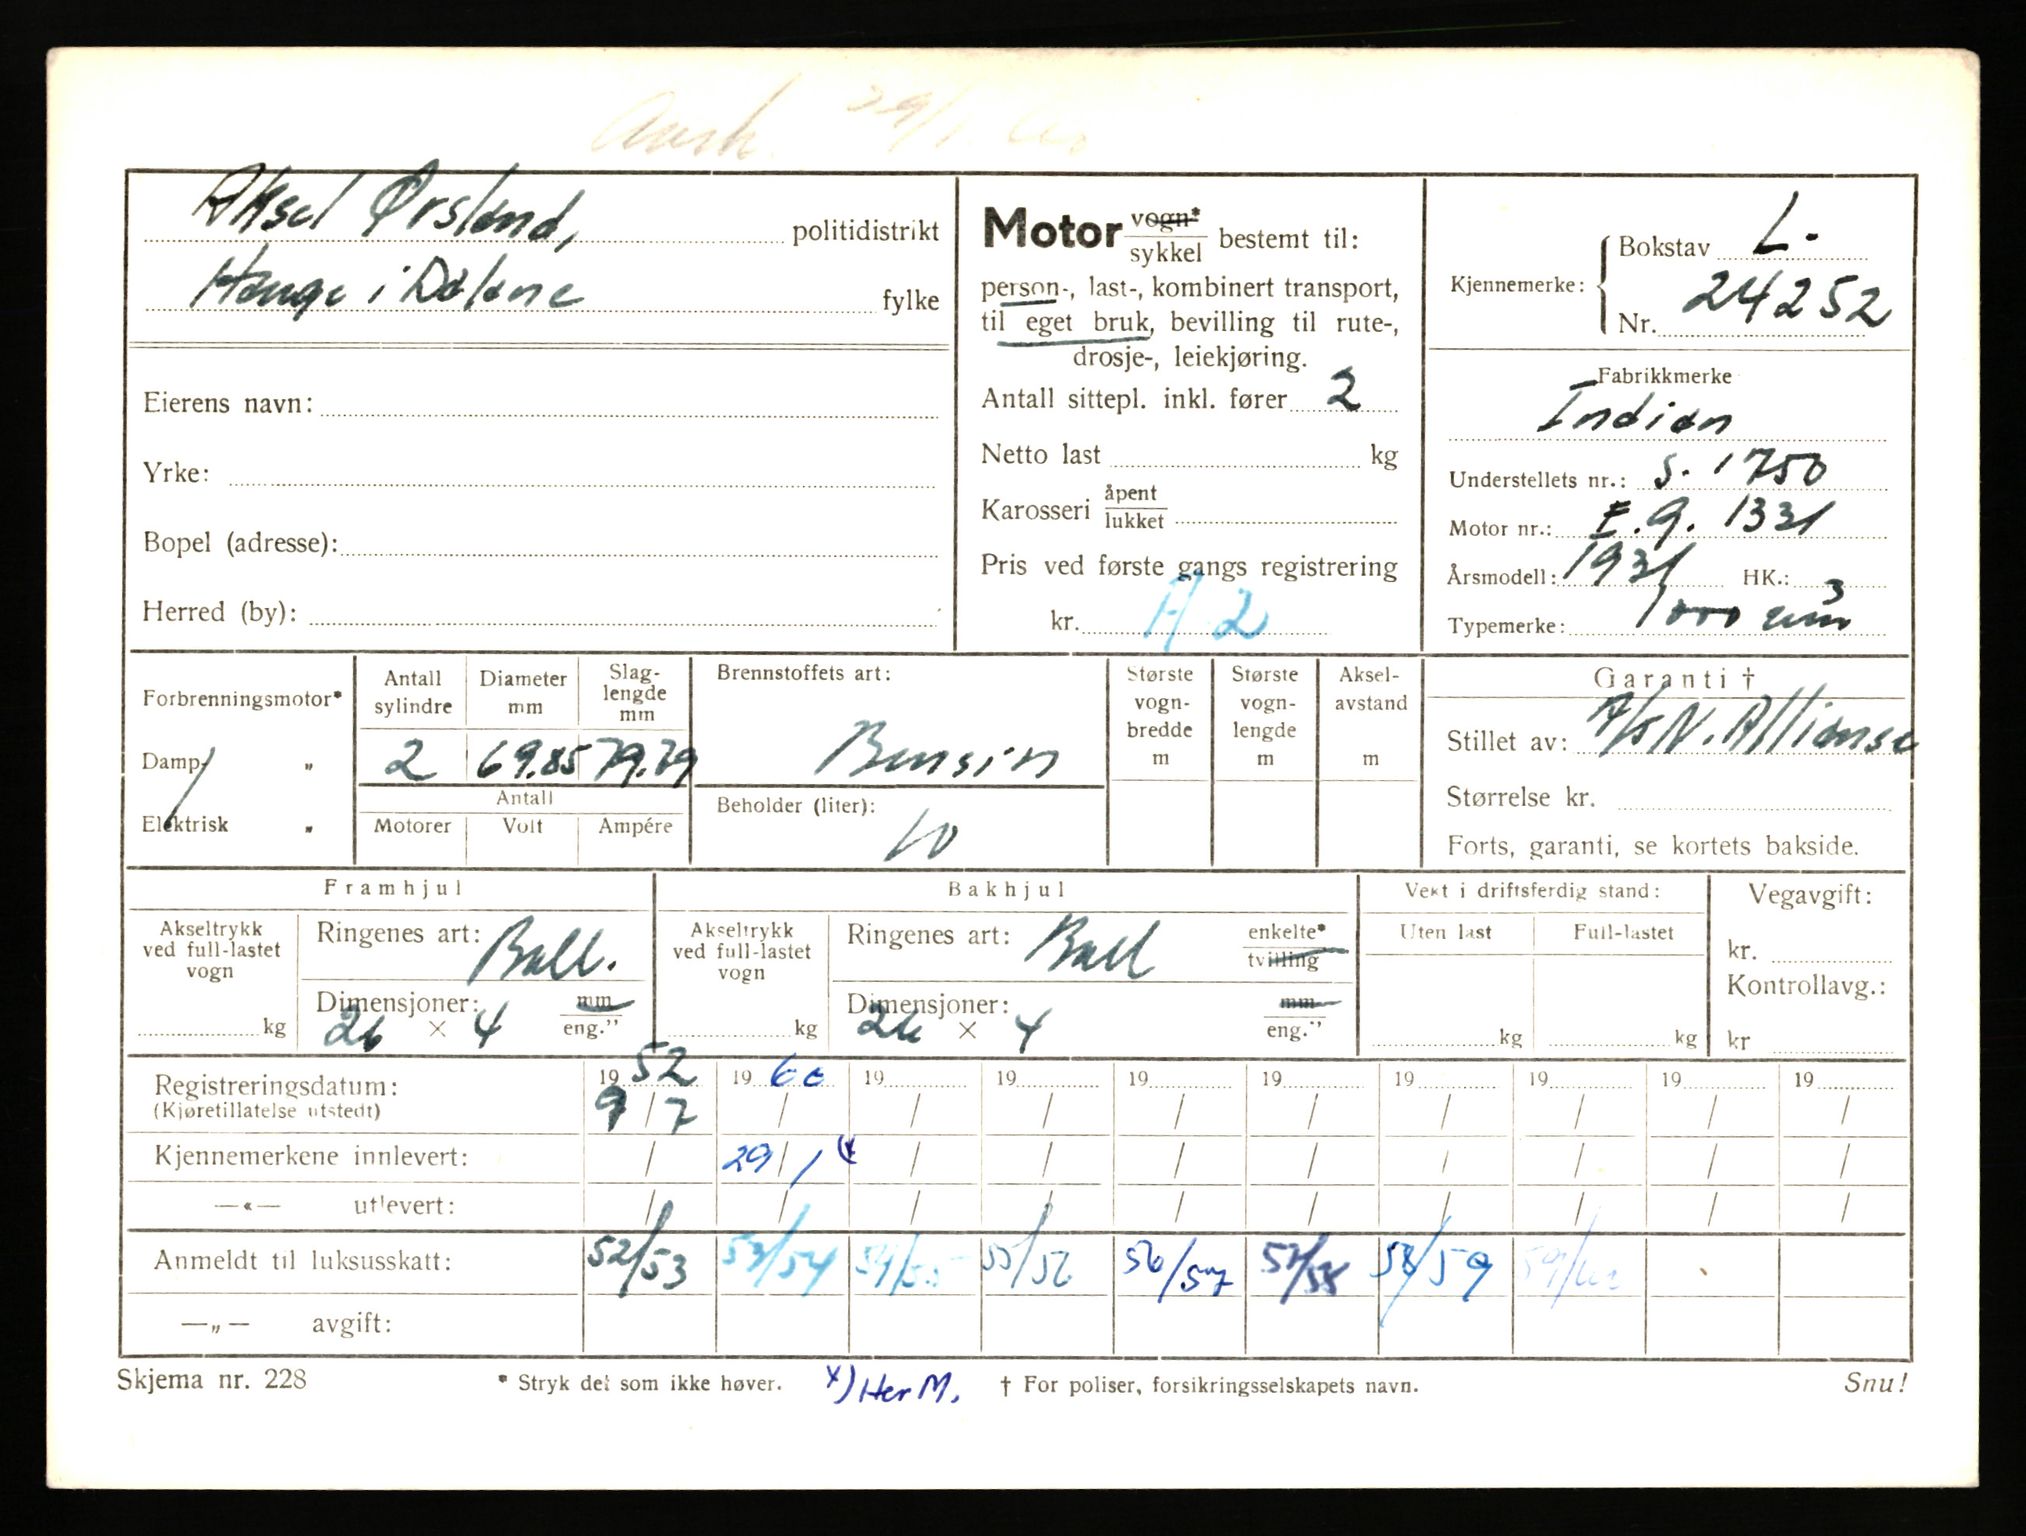 29/1.
Aksel Ørsland, politidistrikt
Hauge i Dalane fylke
Eierens navn:
Yrke:
Bopel (adresse):
Herred (by):
Motor vogn* sykkel bestemt til:
person-, last-, kombinert transport,
til eget bruk, bevilling til rute-,
drosje-, leiekjøring.
Antall sittepl. inkl. fører 2
Netto last kg
Karosseri åpent lukket
Pris ved første gangs registrering
kr. A 2
Kjennemerke: Bokstav L.
Nr. 24252
Fabrikkmerke
Indian
Understellets nr.: S. 1750
Motor nr.: E.G. 1331
Årsmodell: 1931 HK.:
Typemerke: 1000 cm3
Forbrenningsmotor*
Damp- „
Elektrisk „
Antall sylindre
Diameter mm
Slag-lengde mm
2 69.85 79.79
Antall
Motorer Volt Ampére
Brennstoffets art:
Bensin
Beholder (liter):
10
Største vogn-bredde m
Største vogn-lengde m
Aksel-avstand m
Garanti †
Stillet av: A/S N. Allianse
Størrelse kr.
Forts, garanti, se kortets bakside.
Framhjul
Akseltrykk ved full-lastet vogn
kg
Ringenes art: Ball.
Dimensjoner: mm
26 × 4 eng."
Bakhjul
Akseltrykk ved full-lastet vogn
kg
Ringenes art: Ball enkelte* tvilling
Dimensjoner: mm
26 × 4 eng."
Vekt i driftsferdig stand:
Uten last Full-lastet
kg kg
Vegavgift:
kr.
Kontrollavg.:
kr
Registreringsdatum: 1952 1960 19 19 19 19 19 19 19 19
(Kjøretillatelse utstedt) 9/7 / / / / / / / / /
Kjennemerkene innlevert: / 29/1 x / / / / / / / /
—«— utlevert: / / / / / / / / / /
Anmeldt til luksusskatt: 52/53 53/54 54/55 55/56 56/57 57/58 58/59 59/60
—„— avgift:
Skjema nr. 228 * Stryk det som ikke høver. x) Her M. † For poliser, forsikringsselskapets navn. Snu!